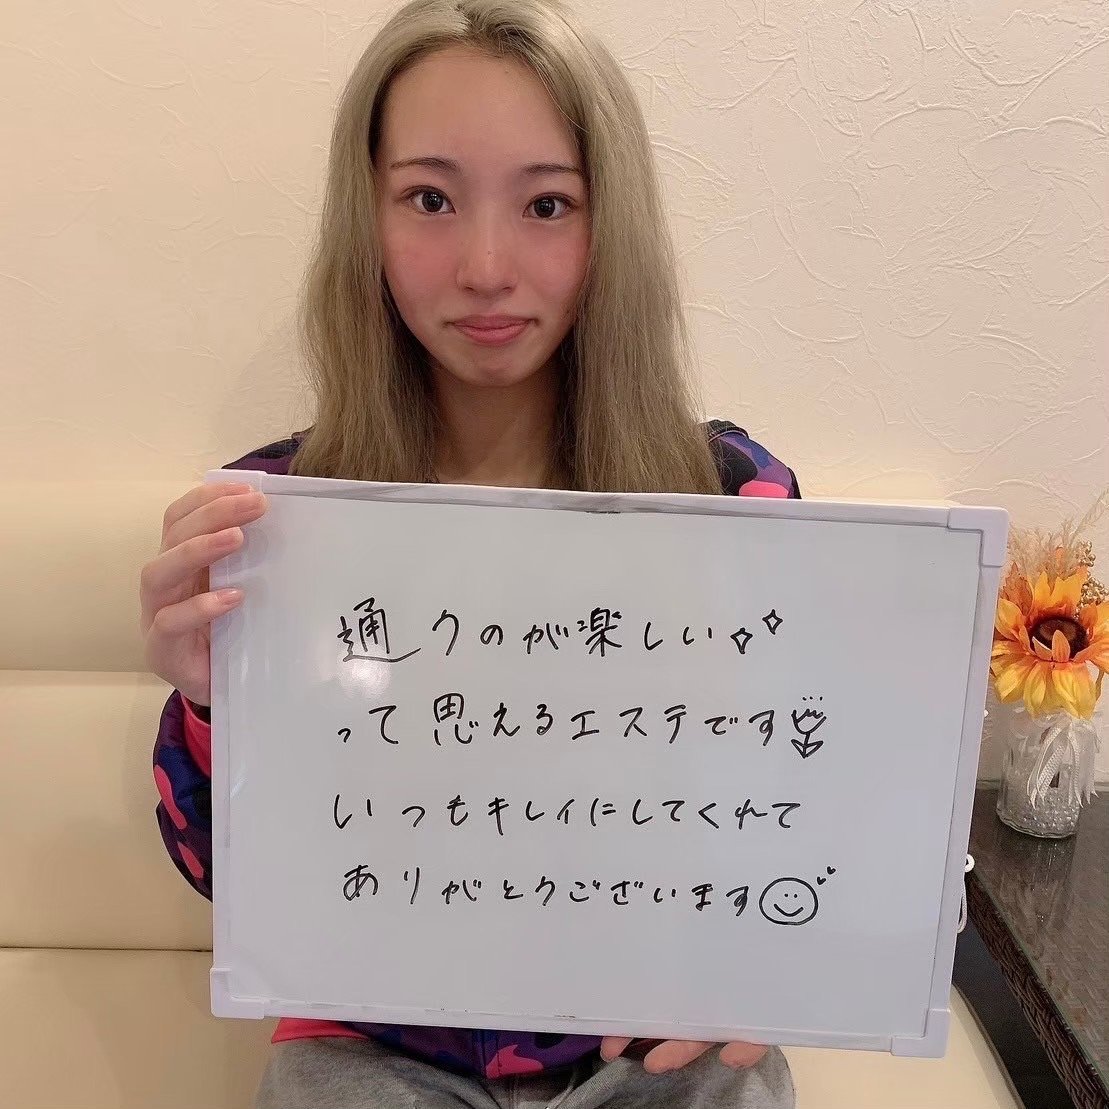 通うのが楽しい
って思えるエステです
いつもキレイにしてくれて
ありがとうございます